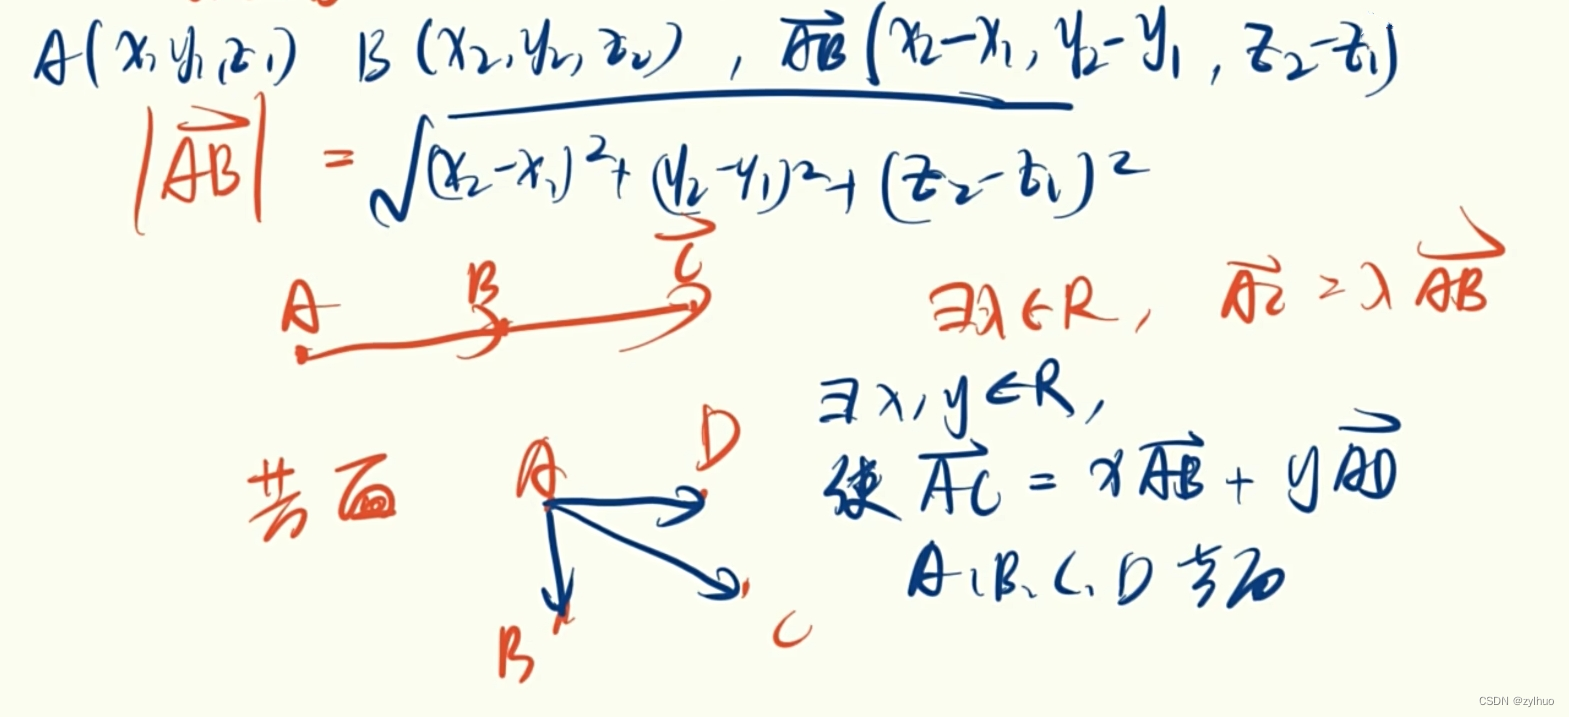 A(x₁,y₁,z₁) B(x₂,y₂,z₂), AB(x₂-x₁, y₂-y₁, z₂-z₁)
|AB| = √(x₂-x₁)²+(y₂-y₁)²+(z₂-z₁)²
A B C
∃λ∈R, AC=λAB
∃x,y∈R,
共面 A D
使 AC = xAB + yAD
A、B、C、D共面
B C
CSDN @zylhuo